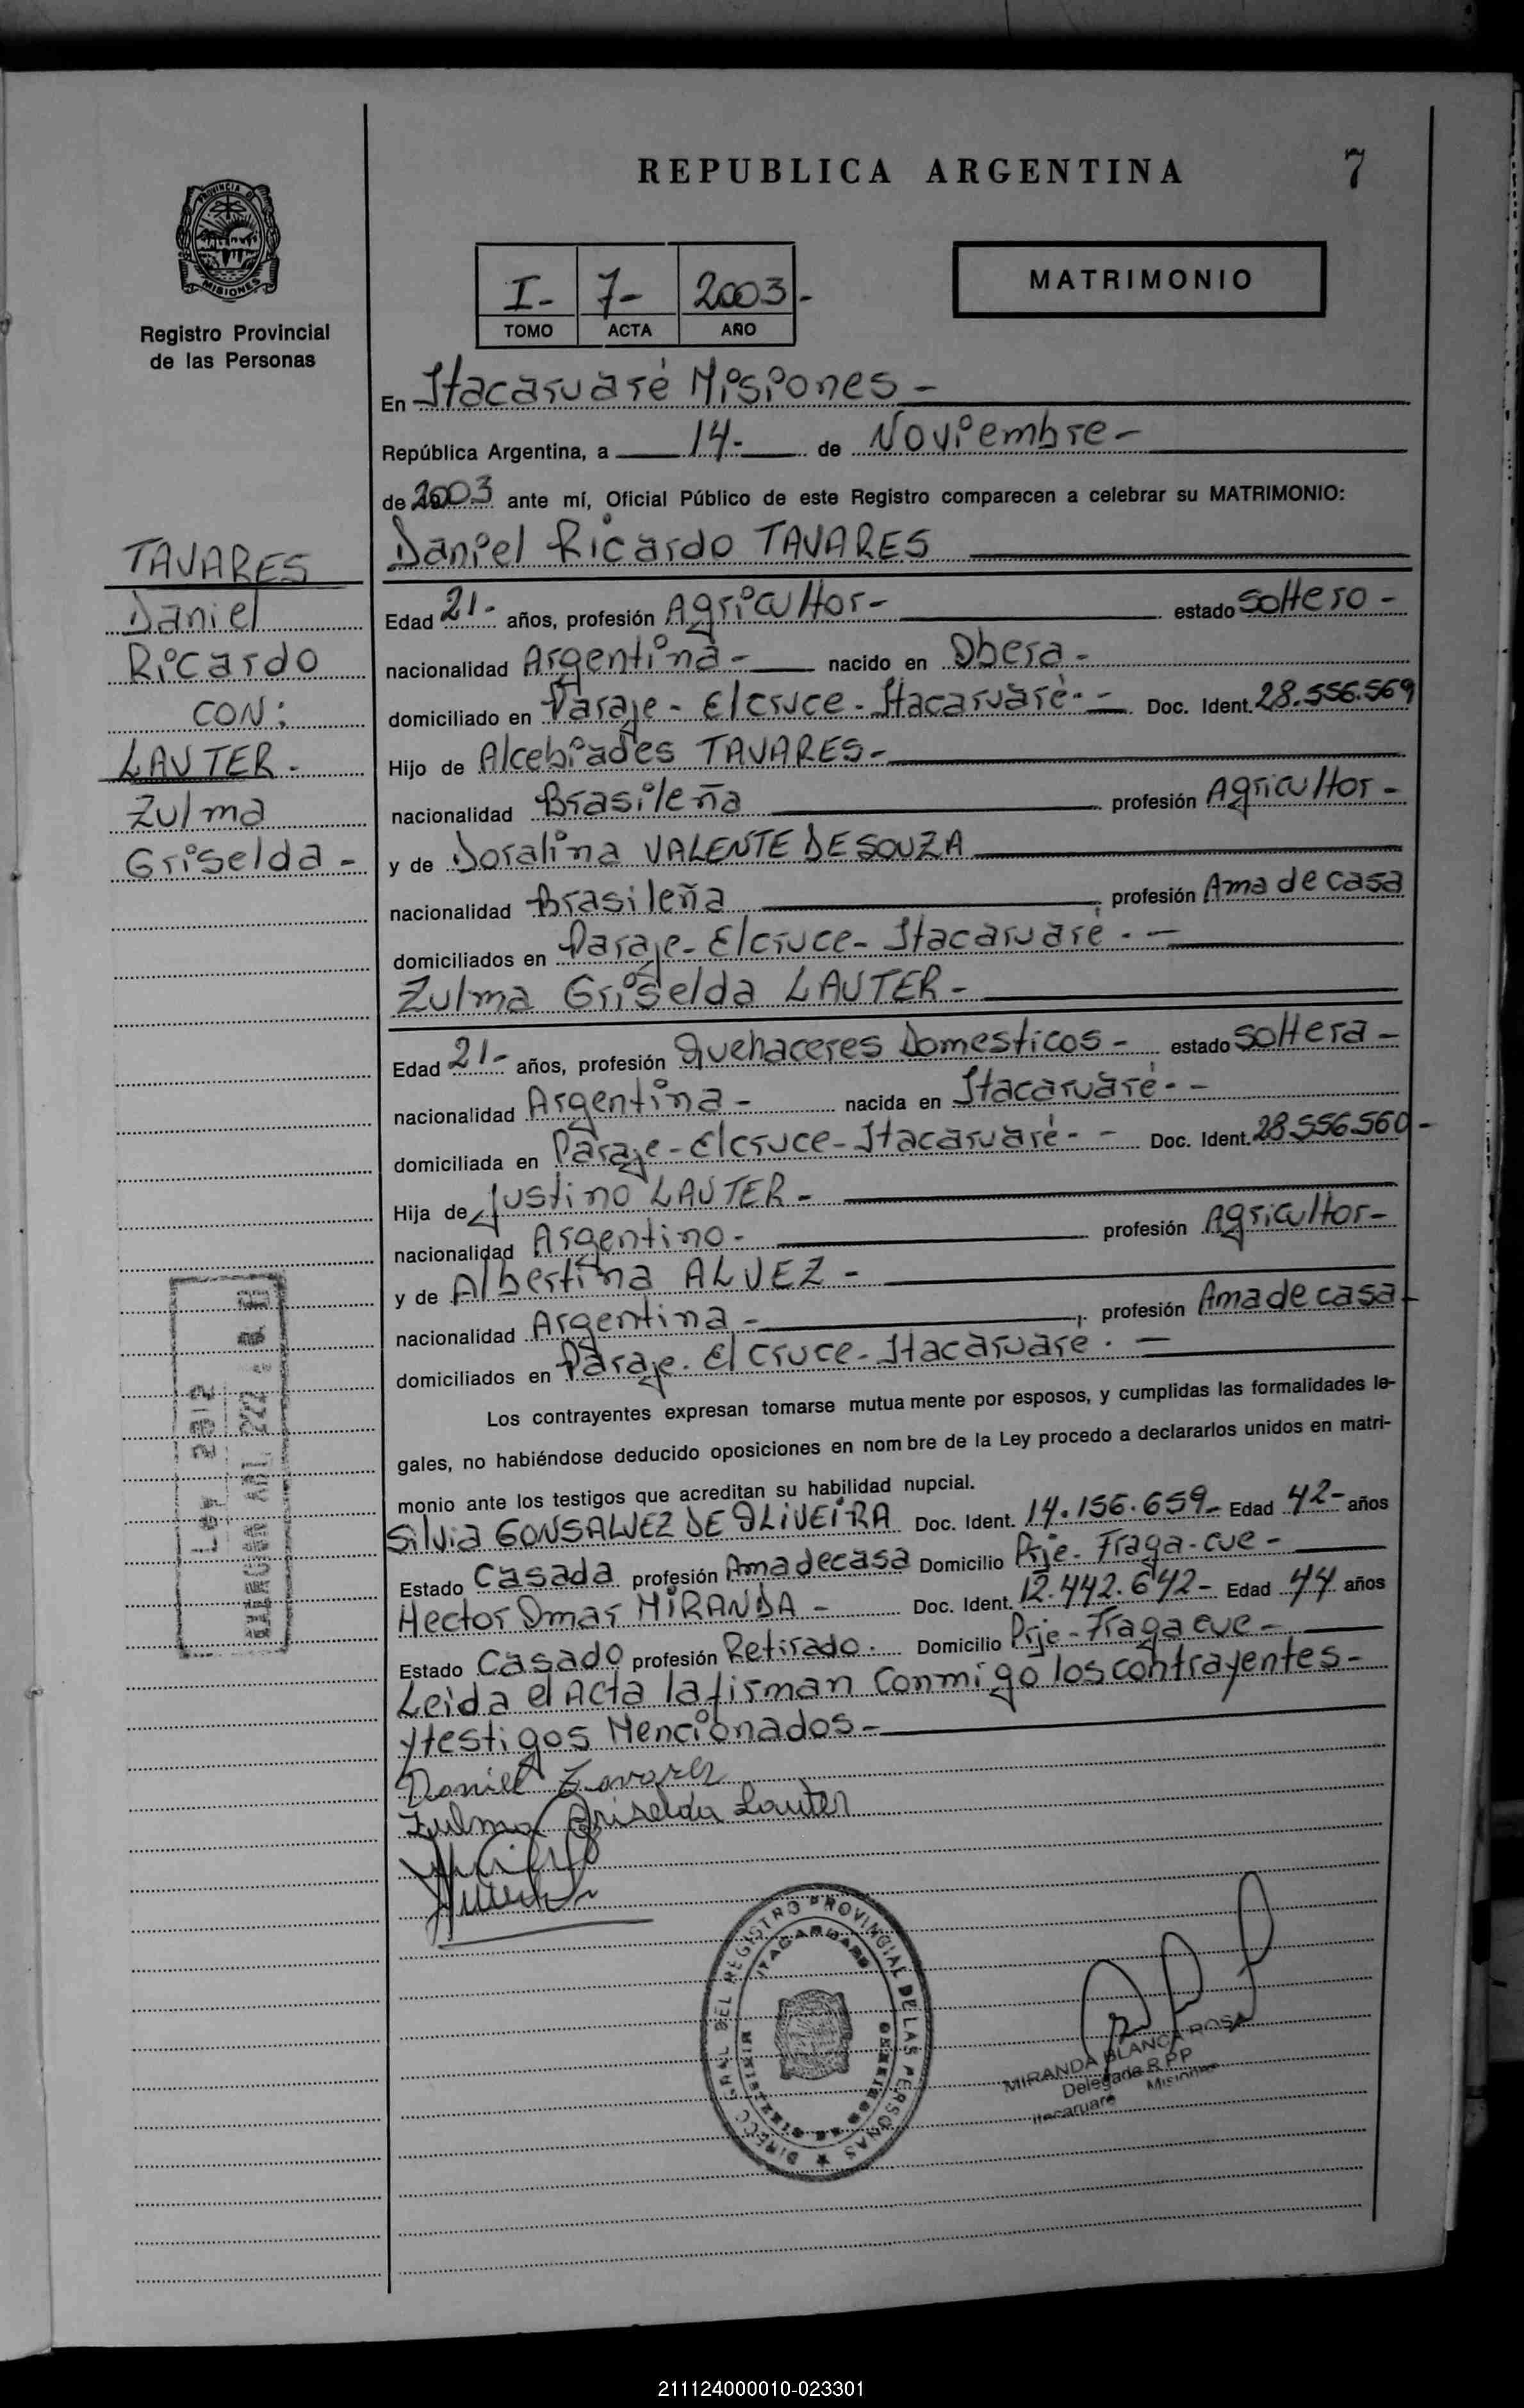 REPUBLICA ARGENTINA
7
PROVINCIA DE
MISIONES
Registro Provincial
de las Personas
I- 7- 2003-
TOMO ACTA AÑO
MATRIMONIO
En Itacaruaré Misiones -
República Argentina, a 14- de Noviembre-
de 2003 ante mí, Oficial Público de este Registro comparecen a celebrar su MATRIMONIO:
Daniel Ricardo TAVARES
TAVARES
Daniel
Ricardo
CON:
LAUTER-
Zulma
Griselda-
Edad 21- años, profesión Agricultor- estado Soltero-
nacionalidad Argentina- nacido en Obera-
domiciliado en Paraje- Elcruce- Itacaruaré- - Doc. Ident. 28.556.569
Hijo de Alcebiades TAVARES-
nacionalidad Brasileña profesión Agricultor-
y de Doralina VALENTE DE SOUZA
nacionalidad Brasileña , profesión Ama de casa
domiciliados en Paraje- Elcruce- Itacaruaré- -
Zulma Griselda LAUTER-
Edad 21- años, profesión Quehaceres Domesticos- estado Soltera-
nacionalidad Argentina- nacida en Itacaruaré- -
domiciliada en Paraje- Elcruce- Itacaruaré- - Doc. Ident. 28.556.560-
Hija de Justino LAUTER-
nacionalidad Argentino- profesión Agricultor-
y de Albertina ALVEZ-
nacionalidad Argentina- , profesión Ama de casa-
domiciliados en Paraje- El cruce- Itacaruare- -
Los contrayentes expresan tomarse mutua mente por esposos, y cumplidas las formalidades le-
gales, no habiéndose deducido oposiciones en nom bre de la Ley procedo a declararlos unidos en matri-
monio ante los testigos que acreditan su habilidad nupcial.
Silvia GONSALVEZ DE OLIVEIRA Doc. Ident. 14.156.659- Edad 42- años
Estado Casada profesión Ama de casa Domicilio Prje- Fraga-cue-
Hector Omar MIRANDA- Doc. Ident. 12.442.642- Edad 44 años
Estado Casado profesión Retirado- Domicilio Prje- Fraga cue-
Leida el Acta la firman Conmigo los contrayentes-
y testigos Mencionados-
Daniel Tavarez
Zulma Griselda Lauter
Ley
ART. 222
DIRECC. GRAL. DEL REGISTRO PROVINCIAL DE LAS PERSONAS
ITACARUARE
MIRANDA BLANCA ROSA
Delegada R.P.P
Itacaruare Misiones
211124000010-023301